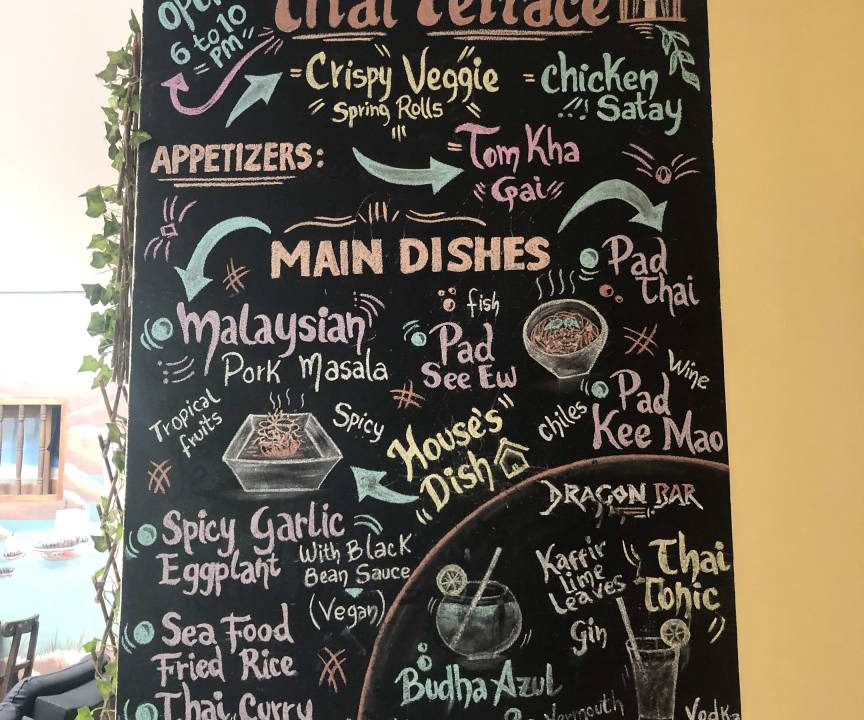 Thai Terrace
6 to 10
PM
Crispy Veggie
Spring Rolls
Chicken
Satay
APPETIZERS:
Tom Kha
Gai
MAIN DISHES
Pad
Thai
Malaysian
Pork Masala
fish
Pad
See Ew
Wine
Pad
Kee Mao
Tropical
fruits
Spicy
chiles
House's
Dish
DRAGON BAR
Spicy Garlic
Eggplant
With Black
Bean Sauce
(Vegan)
Kaffir
Lime
Leaves
Gin
Thai
Tonic
Sea Food
Fried Rice
Budha Azul
Thai Curry
Vermouth
Vodka